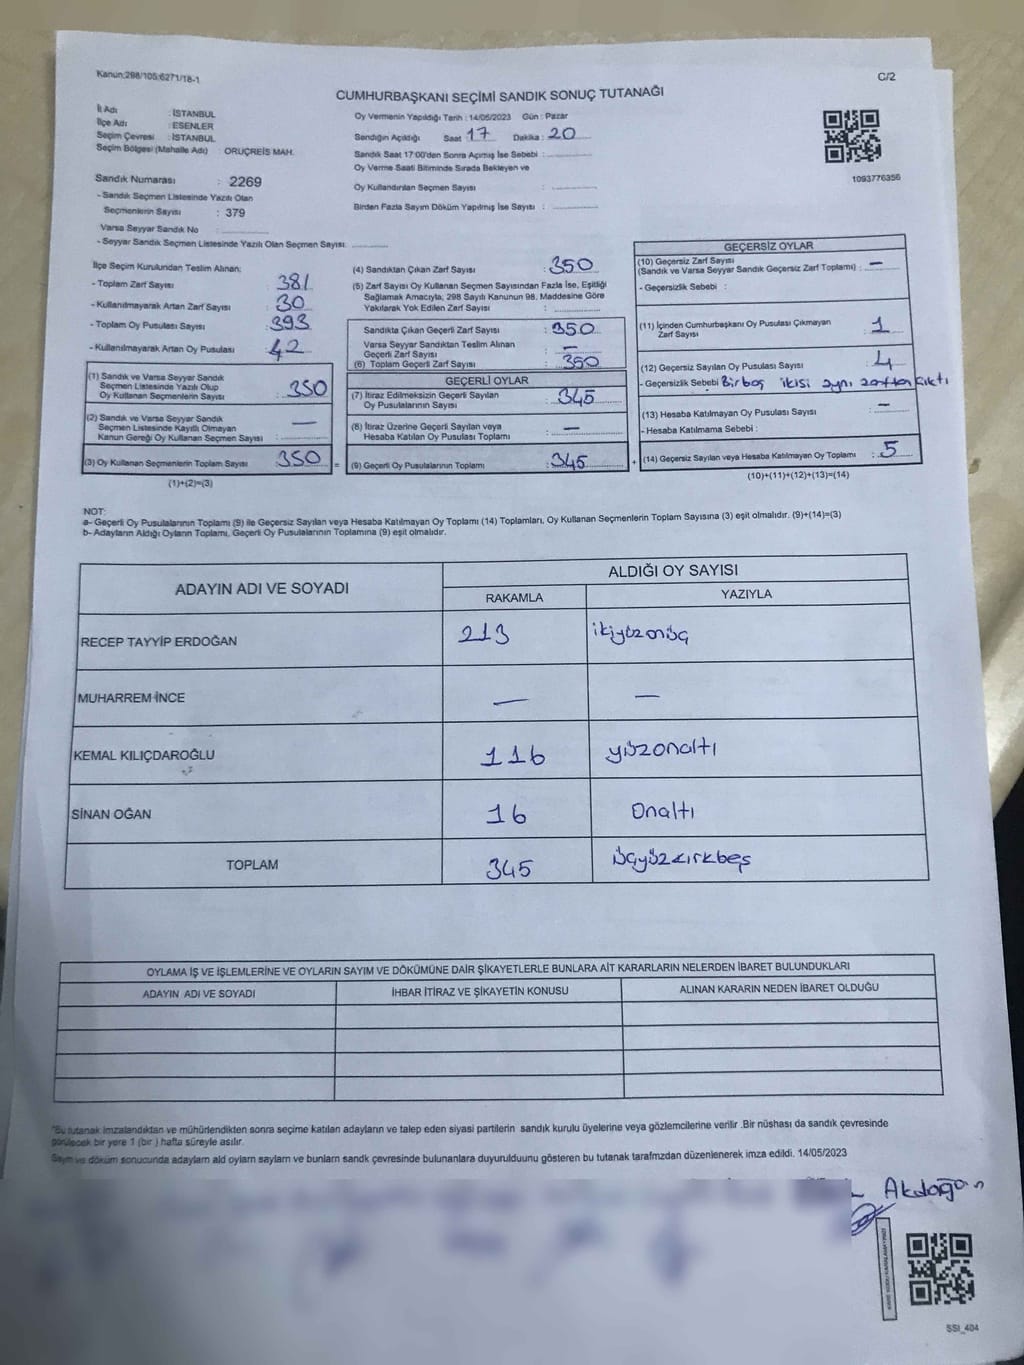 Kanun:298/105;6271/18-1
C/2
CUMHURBAŞKANI SEÇİMİ SANDIK SONUÇ TUTANAĞI
İl Adı : İSTANBUL
İlçe Adı : ESENLER
Seçim Çevresi : İSTANBUL
Seçim Bölgesi (Mahalle Adı) : ORUÇREİS MAH.
Sandık Numarası : 2269
- Sandık Seçmen Listesinde Yazılı Olan
Seçmenlerin Sayısı : 379
Varsa Seyyar Sandık No :
- Seyyar Sandık Seçmen Listesinde Yazılı Olan Seçmen Sayısı:
Oy Vermenin Yapıldığı Tarih : 14/05/2023 Gün : Pazar
Sandığın Açıldığı Saat 17 Dakika : 20
Sandık Saat 17:00'den Sonra Açılmış İse Sebebi :
Oy Verme Saati Bitiminde Sırada Bekleyen ve
Oy Kullandırılan Seçmen Sayısı :
Birden Fazla Sayım Döküm Yapılmış İse Sayısı :
1093776356
İlçe Seçim Kurulundan Teslim Alınan;
- Toplam Zarf Sayısı : 381
- Kullanılmayarak Artan Zarf Sayısı : 30
- Toplam Oy Pusulası Sayısı : 393
- Kullanılmayarak Artan Oy Pusulası : 42
(1) Sandık ve Varsa Seyyar Sandık
Seçmen Listesinde Yazılı Olup
Oy Kullanan Seçmenlerin Sayısı : 350
(2) Sandık ve Varsa Seyyar Sandık
Seçmen Listesinde Kayıtlı Olmayan
Kanun Gereği Oy Kullanan Seçmen Sayısı : —
(3) Oy Kullanan Seçmenlerin Toplam Sayısı : 350
(1)+(2)=(3)
=
(4) Sandıktan Çıkan Zarf Sayısı : 350
(5) Zarf Sayısı Oy Kullanan Seçmen Sayısından Fazla İse, Eşitliği
Sağlamak Amacıyla; 298 Sayılı Kanunun 98. Maddesine Göre
Yakılarak Yok Edilen Zarf Sayısı :
Sandıkta Çıkan Geçerli Zarf Sayısı : 350
Varsa Seyyar Sandıktan Teslim Alınan
Geçerli Zarf Sayısı : —
(6) Toplam Geçerli Zarf Sayısı : 350
GEÇERLİ OYLAR
(7) İtiraz Edilmeksizin Geçerli Sayılan
Oy Pusulalarının Sayısı : 345
(8) İtiraz Üzerine Geçerli Sayılan veya
Hesaba Katılan Oy Pusulası Toplamı : —
(9) Geçerli Oy Pusulalarının Toplamı : 345
+
GEÇERSİZ OYLAR
(10) Geçersiz Zarf Sayısı
(Sandık ve Varsa Seyyar Sandık Geçersiz Zarf Toplamı) : —
- Geçersizlik Sebebi :
(11) İçinden Cumhurbaşkanı Oy Pusulası Çıkmayan
Zarf Sayısı : 1
(12) Geçersiz Sayılan Oy Pusulası Sayısı : 4
- Geçersizlik Sebebi : Bir boş ikisi aynı zarftan çıktı
(13) Hesaba Katılmayan Oy Pusulası Sayısı : —
- Hesaba Katılmama Sebebi :
(14) Geçersiz Sayılan veya Hesaba Katılmayan Oy Toplamı : 5
(10)+(11)+(12)+(13)=(14)
NOT:
a- Geçerli Oy Pusulalarının Toplamı (9) ile Geçersiz Sayılan veya Hesaba Katılmayan Oy Toplamı (14) Toplamları, Oy Kullanan Seçmenlerin Toplam Sayısına (3) eşit olmalıdır. (9)+(14)=(3)
b- Adayların Aldığı Oyların Toplamı, Geçerli Oy Pusulalarının Toplamına (9) eşit olmalıdır.
ADAYIN ADI VE SOYADI
ALDIĞI OY SAYISI
RAKAMLA YAZIYLA
RECEP TAYYİP ERDOĞAN 213 ikiyüzonüç
MUHARREM İNCE — —
KEMAL KILIÇDAROĞLU 116 yüzonaltı
SİNAN OĞAN 16 Onaltı
TOPLAM 345 üçyüzkırkbeş
OYLAMA İŞ VE İŞLEMLERİNE VE OYLARIN SAYIM VE DÖKÜMÜNE DAİR ŞİKAYETLERLE BUNLARA AİT KARARLARIN NELERDEN İBARET BULUNDUKLARI
ADAYIN ADI VE SOYADI İHBAR İTİRAZ VE ŞİKAYETİN KONUSU ALINAN KARARIN NEDEN İBARET OLDUĞU
*Bu tutanak imzalandıktan ve mühürlendikten sonra seçime katılan adayların ve talep eden siyasi partilerin sandık kurulu üyelerine veya gözlemcilerine verilir .Bir nüshası da sandık çevresinde
görülecek bir yere 1 (bir ) hafta süreyle asılır.
Sayım ve döküm sonucunda adayların ald oyların sayların ve bunların sandk çevresinde bulunanlara duyurulduunu gösteren bu tutanak tarafmzdan düzenlenerek imza edildi. 14/05/2023
Akdoğan
SSI_404